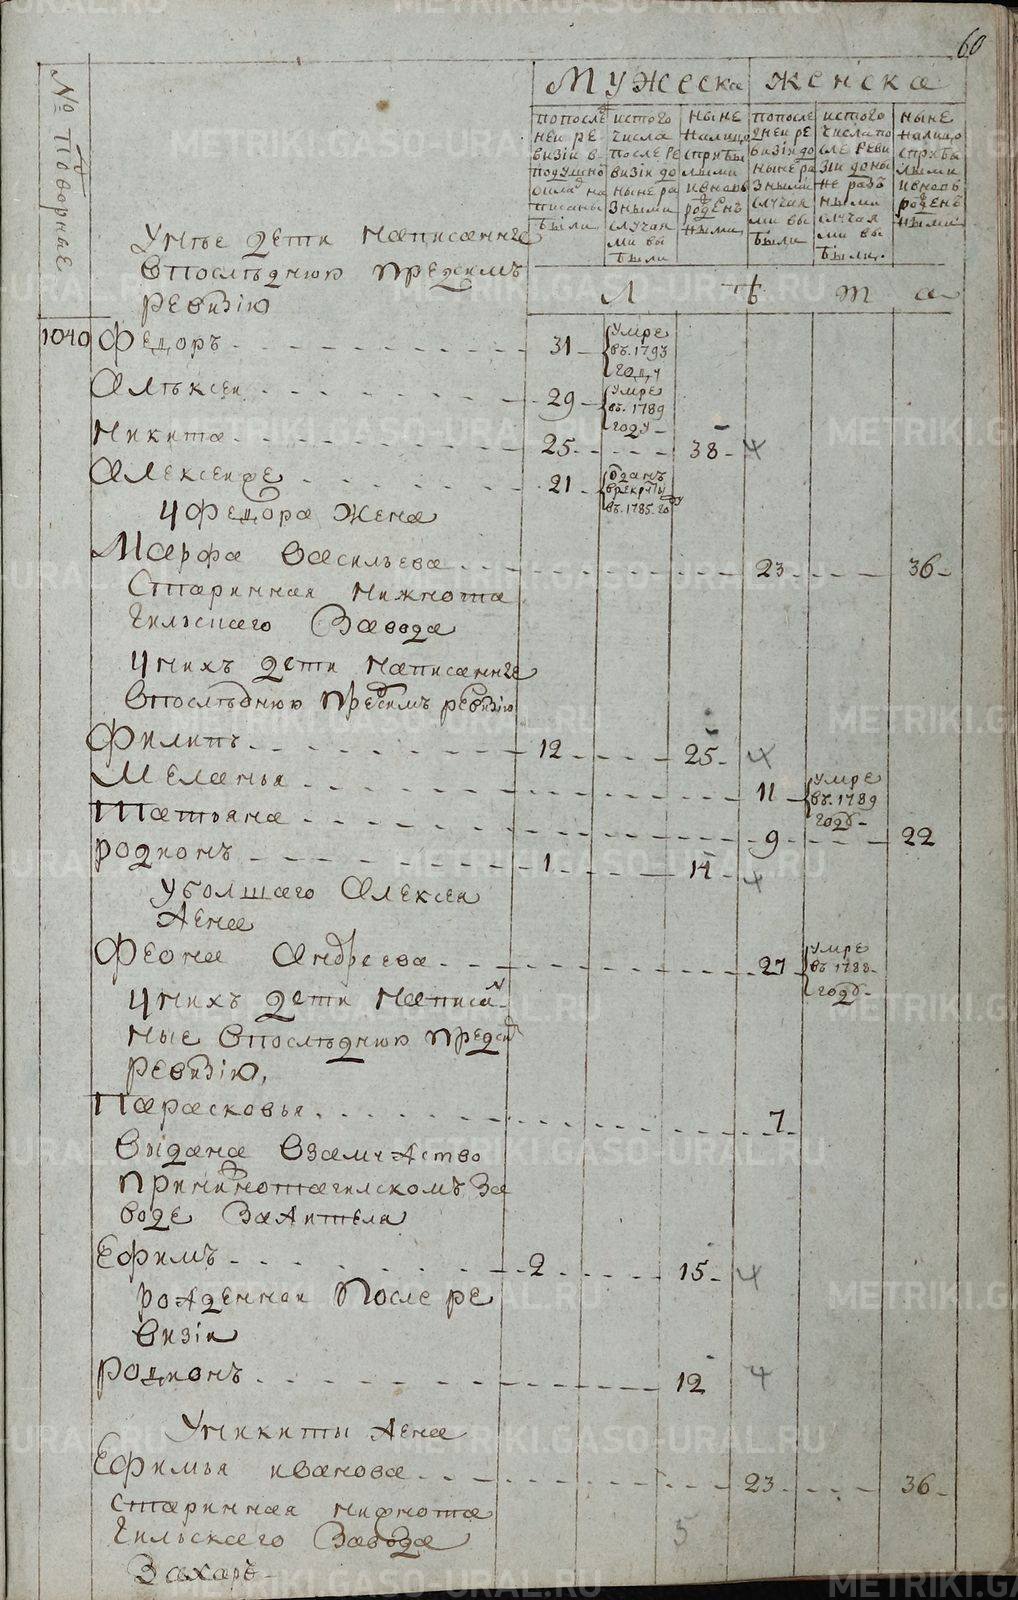 60
№ Подворные
Мужеска
женска
по последней ревизіи в подушной оклад написаны были
из того числа после ревизіи до ныне разными случаями выбыли
ныне на лицо с прибылыми и вновь рожденными
по последней ревизіи до ныне разными случаями выбыли
из того числа после ревизіи доныне разными случаями выбыли
ныне на лицо с прибылыми и вновь рожденными
Л ѣ т а
У нѣе дети написанные
в последнюю пред симъ
ревизію
1040 Федоръ 31 умре въ 1793 году
Алѣксеи 29 умре въ 1789 году
Никита 25 38 ч
Алексеи же 21 отданъ в рекруты въ 1785 году
У Федора жена
Марфа Васильева 23 36
старинная нижнота
гильскаго завода
У них дети написанные
в последнюю пред симъ ревизію
Филипъ 12 25 ч
Меланья 11 умре въ 1789 году
Татьяна 9 22
родионъ 1 14 ч
У болшаго Алексеи
жена
Феона Андреева 27 умре въ 1788 году
У нихъ дети написан
ные в последнюю пред сим
ревизію,
Парасковья 7
выдана в замужство
при нижнотагилском за
воде за жителя
Ефимъ 2 15 ч
рожденнаи после ре
визіи
родионъ 12 ч
У никиты жена
Ефимья иванова 23 36
старинная нижнота
гильскаго завода
5
Захаръ